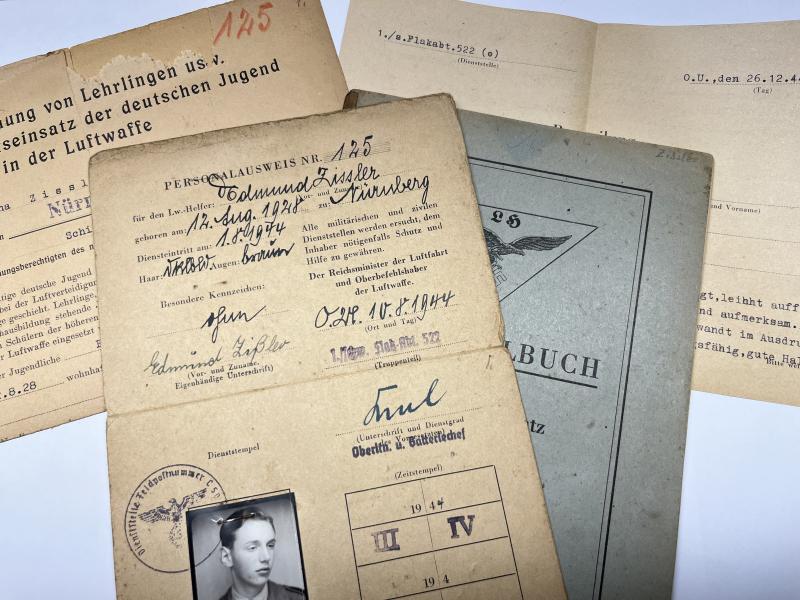 125
nung von Lehrlingen usw.
seinsatz der deutschen Jugend
in der Luftwaffe
Zissl
Nürn
Schi
nungsberechtigten des m
tige deutsche Jugend
bei der Luftverteidigung
ge geschieht. Lehrlinge,
r Luftwaffe eingesetzt
er Jugendliche
.8.28 wohnhaf
1./s.Flakabt.522 (o)
(Dienststelle)
O.U.,den 26.12.44
(Tag)
Beurteilung
und Vorname)
gt,leihht auff
nd aufmerksam.
wandt im Ausdru
gsfähig,gute Hal
Bitte wen
PERSONALAUSWEIS NR. 125
für den Lw.-Helfer: Edmund Zissler
(Vor- und Zuname)
geboren am: 12. Aug. 1928 zu: Nürnberg
Diensteintritt am: 1.8.1944
Haar: dklbld. Augen: braun
Besondere Kennzeichen:
ohne
Edmund Zißler
(Vor- und Zuname)
Eigenhändige Unterschrift)
Alle militärischen und zivilen
Dienststellen werden ersucht, dem
Inhaber nötigenfalls Schutz und
Hilfe zu gewähren.
Der Reichsminister der Luftfahrt
und Oberbefehlshaber
der Luftwaffe.
O.U. 10.8.1944
(Ort und Tag)
1./schw. Flak-Abt. 522
(Truppenteil)
(Unterschrift und Dienstgrad
des Vorgesetzten)
Oberltn. u. Batteriechef
Dienststempel
(Zeitstempel)
Dienststelle Feldpostnummer
1944
III IV
194
Zissler
LH
LBUCH
tz